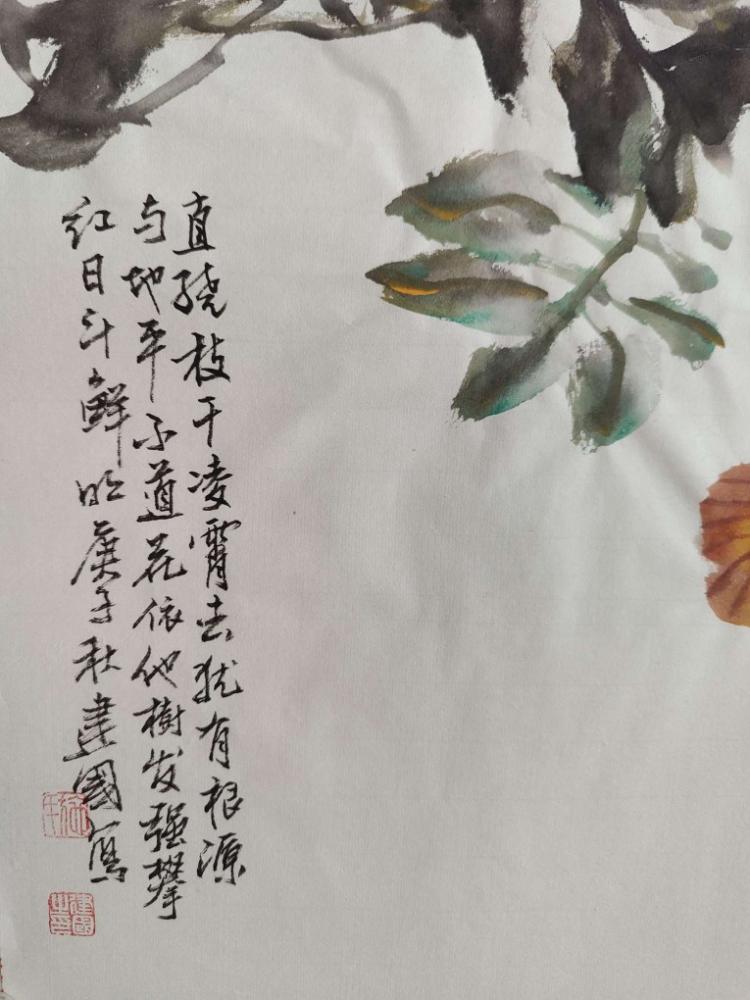 直绕枝干凌霄去犹有根源
与地平不道花依他樹发强攀
红日斗鲜明庚子秋建國寫